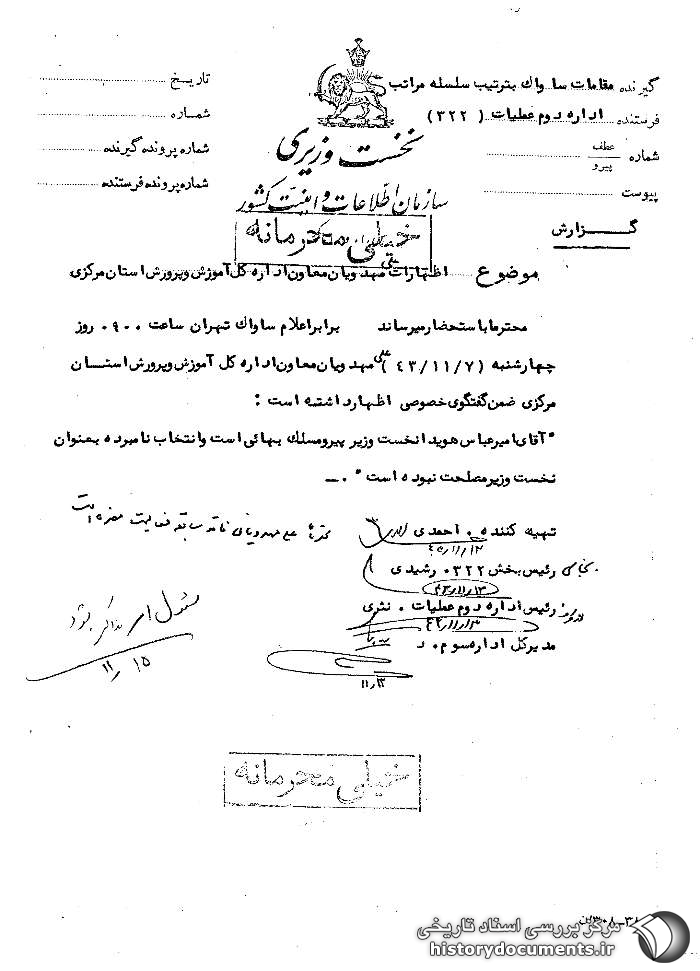 گیرنده مقامات ساواك بترتیب سلسله مراتب
فرستنده اداره دوم عملیات (۳۲۲)
شماره عطف
پیرو
پیوست
تاریخ
شماره
شماره پرونده گیرنده
شماره پرونده فرستنده
نخست وزیری
سازمان اطلاعات و امنیت کشور
خیلی محرمانه
گزارش
موضوع اظهارات علی مهدویان معاون اداره کل آموزش و پرورش استان مرکزی
محترما باستحضار میرساند برابر اعلام ساواك تهران ساعت ۰۹۰۰ روز
چهارشنبه (۴۳/۱۱/۷) علی مهدویان معاون اداره کل آموزش و پرورش استان
مرکزی ضمن گفتگوی خصوصی اظهار داشته است :
"آقای امیرعباس هویدا نخست وزیر پیرو مسلك بهائی است و انتخاب نامبرده بعنوان
نخست وزیر مصلحت نبوده است ".ـ
تهیه کننده . احمدی
رئیس بخش ۳۲۲ . رشیدی
۴۳/۱۱/۱۳
رئیس اداره دوم عملیات . نثری
۴۳/۱۱/۱۳
مدیرکل اداره سوم .
محترما علی مهدویانی فاقد سابقه فعالیت مضره است
بشود
۱۱/۱۵
خیلی محرمانه
مرکز بررسی اسناد تاریخی
historydocuments.ir